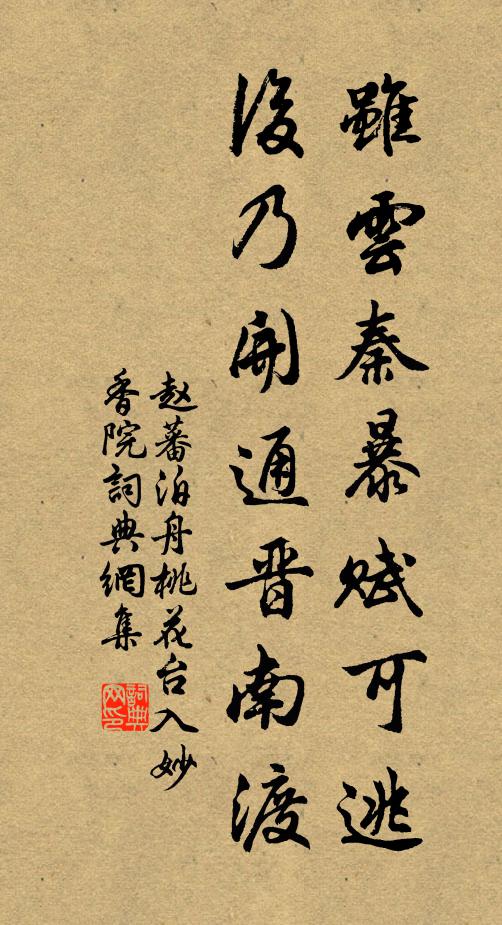 雖雲秦暴賦可逃
後乃開通晋南渡
赵蕃泊舟桃花台入妙
香院詞典網集
詞典
网印